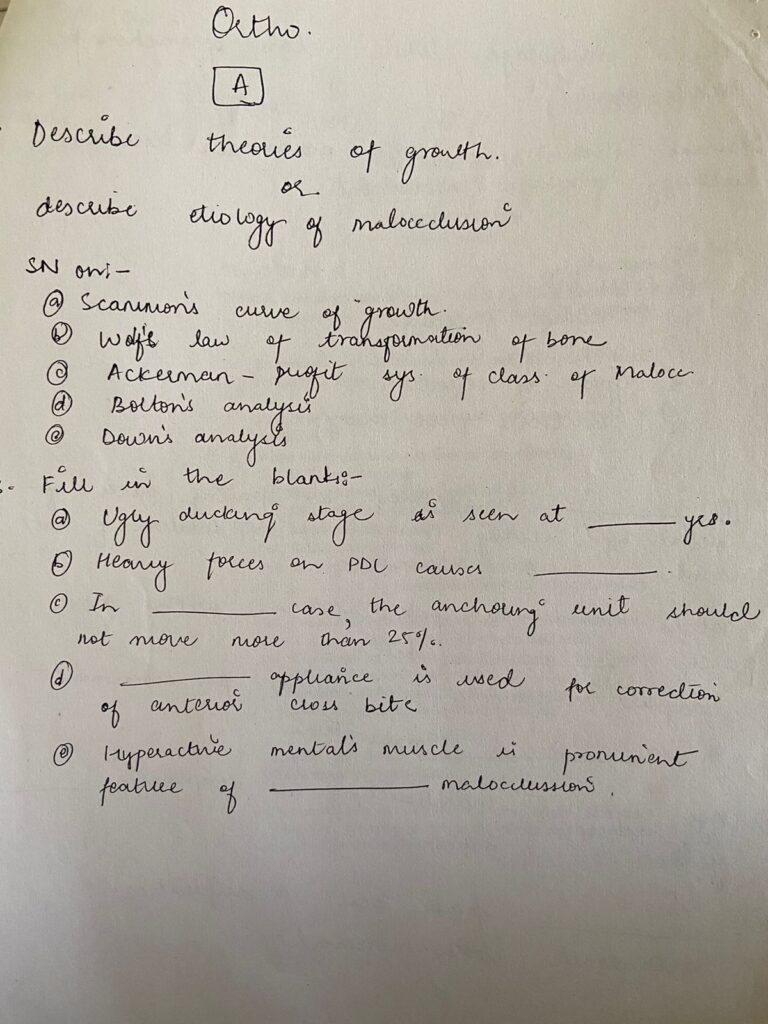 Ortho.
A
Describe theories of growth.
or
describe etiology of malocclusion
SN on:-
(a) Scammon's curve of growth.
(b) Wolf's law of transformation of bone
(c) Ackerman - profit sys. of class. of Malocc
(d) Bolton's analysis
(e) Down's analysis
Fill in the blanks:-
(a) Ugly ducking stage is seen at ______ yrs.
(b) Heavy forces on PDL causes ______.
(c) In ______ case, the anchoring unit should
not move more than 25%.
(d) ______ appliance is used for correction
of anterior cross bite
(e) Hyperactive mentals muscle is prominent
feature of ______ malocclussion.